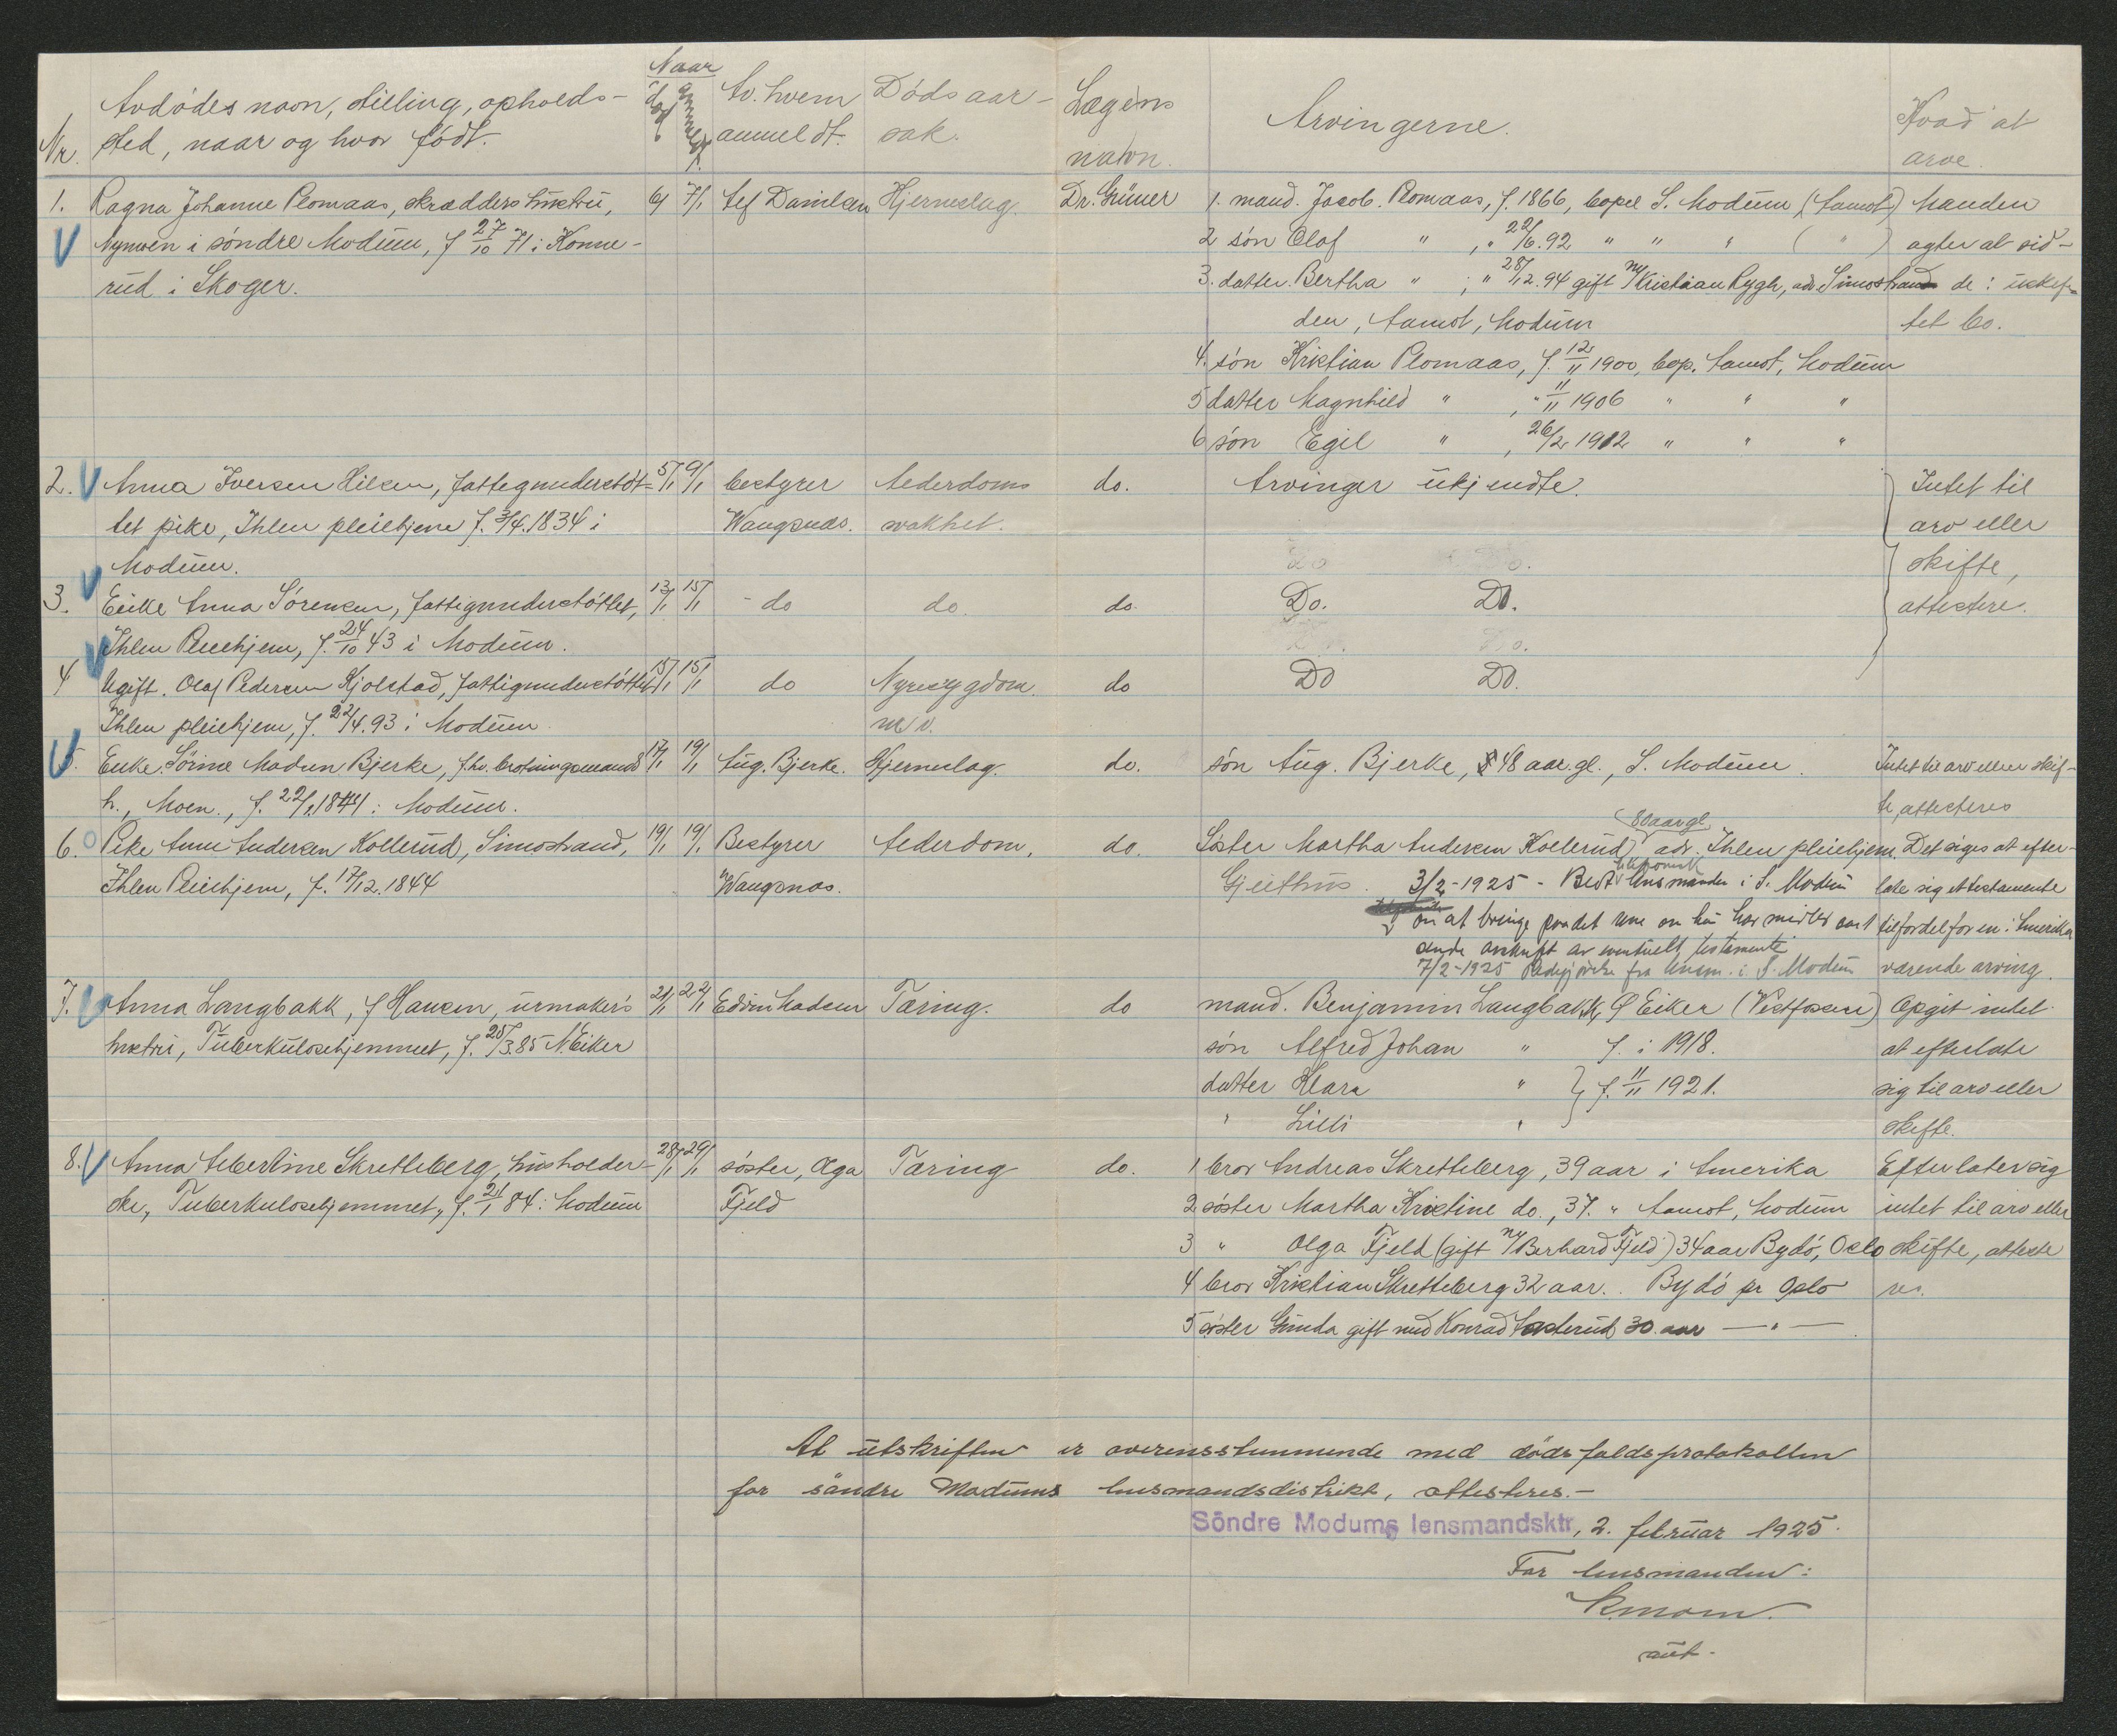 Naar
Nr. Avdødes navn, stilling, opholds-
sted, naar og hvor født.
død anmeldt.
Av hvem
anmeldt.
Dødsaar-
sak.
Lægens
navn.
Arvingerne.
Hvad at
arve.
1. Ragna Johanne Plomaas, skrædders hustru, 6/1 7/1 Danielsen Hjerneslag. Dr. Grüner 1. mand. Jacob. Plomaas, f. 1866, bopel S. Modum (Aamot) Manden
i søndre Modum, f 27/10 71 i Konne- 2 søn Olaf " , " 22/6.92 " " " ( " ) agter at sid-
rud i Skoger. 3. datter. Bertha " , " 28/12.94 gift m/ Kristian Rygh, adr Simostran- de i uskif-
den, Aamot, Modum tet bo.
4. søn Kristian Plomaas, f. 12/11 1900, bop. Aamot, Modum
5 datter Magnhild " , " 11/11 1906 " " "
6 søn Egil " , 26/2 1912 " " "
2. Anna Iversen Hilsen, fattigunderstøt- 5/1 9/1 bestyrer Alderdoms do. Arvinger ukjendte. Intet til
tet pike, Ihlen pleiehjem f. 3/4.1834 i Wangsnas. svakhet. arv eller
Modum. skifte,
3. Enke Anna Sørensen, fattigunderstøttet, 13/1 15/1 - do do. do. Do. Do. attestere.
Ihlen Pleiehjem, f. 24/10 43 i Modum.
4 Ugift. Olaf Pedersen Kjolstad, fattigunderstøttet 15/1 15/1 do Nyresygdom. do Do Do.
Ihlen pleiehjem, f. 22/4.93 i Modum m.v.
5. Enke. Sørine Madsen Bjerke, fhv. brolningsmands 17/1 19/1 Aug. Bjerke. Hjerneslag. do. søn Aug. Bjerke, 48 aar. gl., S. Modum. Intet til arv eller skif-
h., Moen., f. 22/1.1841 i Modum. te, attesteres
80 aar gl.
6. Pike Anne Andersen Kollerud, Simostrand, 19/1 19/1 Bestyrer Alderdom, do. Søster Martha Andersen Kollerud, adr. Ihlen pleiehjem. Det siges at efter-
telefonisk
Ihlen Pleiehjem, f. 17/12.1844 Wangsnas. Gjeithus. 3/2-1925 - Bedt lensmanden i S. Modum late sig et testamente
om at bringe paa det rene om hun har midler samt til fordel for en i Amerika
sende avskrift av eventuelt testamente værende arving.
7/2-1925 fra lensm. i S. Modum
7. Anna Langbakk, f Hansen, urmaker's 21/1 22/1 Edvin Madsen Tæring. do mand. Benjamin Langbakk, Ø Eiker (Vestfossen) Opgit intet
hustru, Tuberkulosehjemmet, f. 25/3.85 N. Eiker søn Alfred Johan " f. i 1918. at efterlate
datter Klara " } f. 11/11 1921. sig til arv eller
" Lilli " skifte.
8. Anna Alberline Skretteberg, husholder- 28/1 29/1 søster, Olga Tæring do. 1 bror Andreas Skretteberg, 39 aar i Amerika Efterlater sig
ske, Tuberkulosehjemmet, f. 21/1 84 i Modum Fjeld 2 søster Martha Kristine do., 37. " Aamot, Modum intet til arv eller
3 " Olga Fjeld (gift m/ Berhard Fjeld) 34 aar Bydø, Oslo skifte, atteste
4 bror Kristian Skretteberg 32 aar. . Bydø pr Oslo res.
5 søster Gunda gift med Konrad 30. aar — " —
At utskriften er overensstemmende med dødsfaldsprotokollen
for søndre Modums lensmandsdistrikt, attesteres. -
Söndre Modums lensmandsktr, 2. februar 1925.
For lensmanden:
aut.